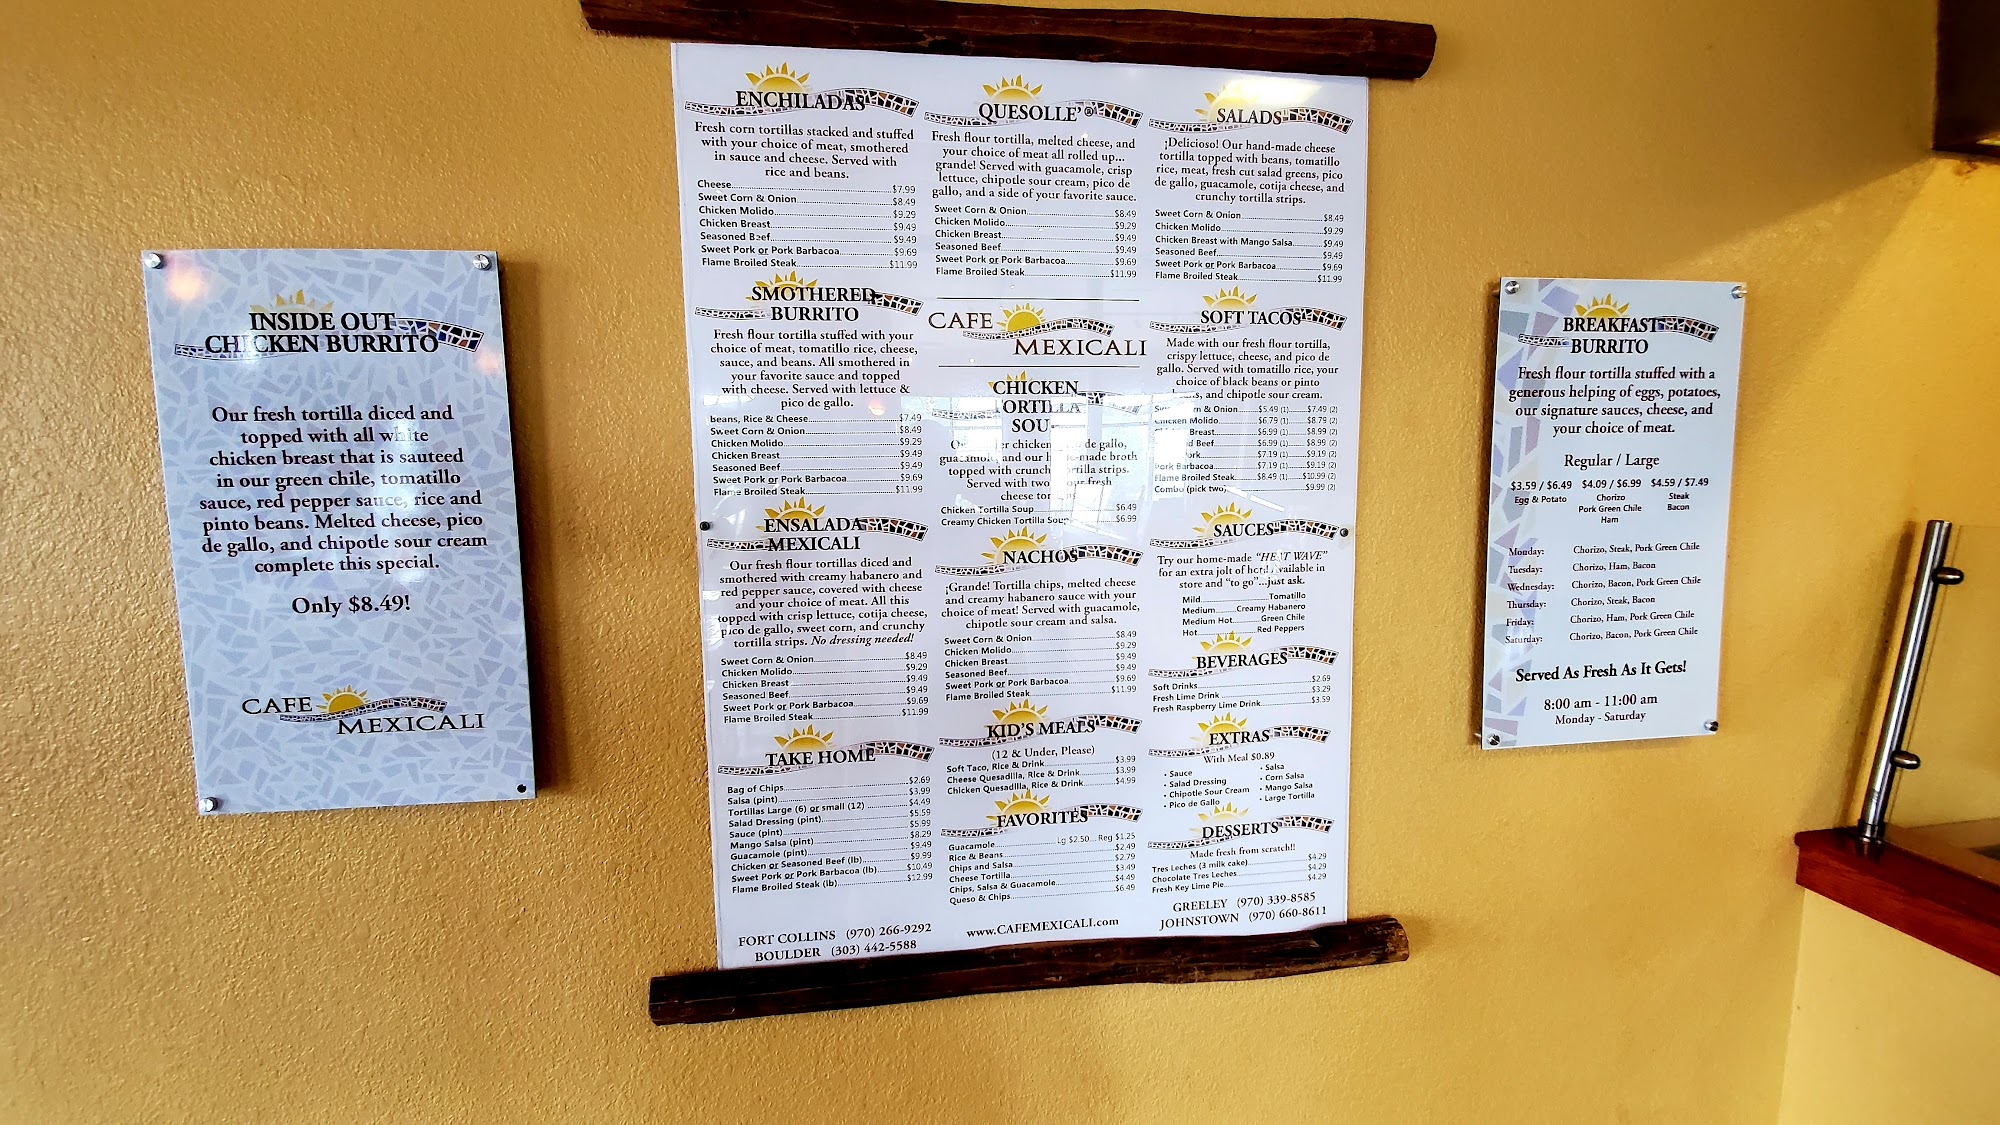 INSIDE OUT
CHICKEN BURRITO
Our fresh tortilla diced and
topped with all white
chicken breast that is sauteed
in our green chile, tomatillo
sauce, red pepper sauce, rice and
pinto beans. Melted cheese, pico
de gallo, and chipotle sour cream
complete this special.
Only $8.49!
CAFE
MEXICALI
ENCHILADAS
Fresh corn tortillas stacked and stuffed
with your choice of meat, smothered
in sauce and cheese. Served with
rice and beans.
Cheese $7.99
Sweet Corn & Onion $8.49
Chicken Molido $9.29
Chicken Breast $9.49
Seasoned Beef $9.49
Sweet Pork or Pork Barbacoa $9.69
Flame Broiled Steak $11.99
SMOTHERED
BURRITO
Fresh flour tortilla stuffed with your
choice of meat, tomatillo rice, cheese,
sauce, and beans. All smothered in
your favorite sauce and topped
with cheese. Served with lettuce &
pico de gallo.
beans, Rice & Cheese $7.49
Sweet Corn & Onion $8.49
Chicken Molido $9.29
Chicken Breast $9.49
Seasoned Beef $9.49
Sweet Pork or Pork Barbacoa $9.69
Flame Broiled Steak $11.99
ENSALADA
MEXICALI
Our fresh flour tortillas diced and
smothered with creamy habanero and
red pepper sauce, covered with cheese
and your choice of meat. All this
topped with crisp lettuce, cotija cheese,
pico de gallo, sweet corn, and crunchy
tortilla strips. No dressing needed!
Sweet Corn & Onion $8.49
Chicken Molido $9.29
Chicken Breast $9.49
Seasoned Beef $9.49
Sweet Pork or Pork Barbacoa $9.69
Flame Broiled Steak $11.99
TAKE HOME
Bag of Chips $2.69
Salsa (pint) $3.99
Tortillas Large (6) or small (12) $4.49
Salad Dressing (pint) $5.59
Sauce (pint) $5.99
Mango Salsa (pint) $8.29
Guacamole (pint) $9.49
Chicken or Seasoned Beef (lb) $9.99
Sweet Pork or Pork Barbacoa (lb) $10.49
Flame Broiled Steak (lb) $12.99
FORT COLLINS (970) 266-9292
BOULDER (303) 442-5588
QUESOLLE'®
Fresh flour tortilla, melted cheese, and
your choice of meat all rolled up...
grande! Served with guacamole, crisp
lettuce, chipotle sour cream, pico de
gallo, and a side of your favorite sauce.
Sweet Corn & Onion $8.49
Chicken Molido $9.29
Chicken Breast $9.49
Seasoned Beef $9.49
Sweet Pork or Pork Barbacoa $9.69
Flame Broiled Steak $11.99
CAFE
MEXICALI
CHICKEN
TORTILLA
SOU
chicken, de gallo,
and our made broth
topped with crunch tortilla strips.
Served with two fresh
cheese
Chicken Tortilla Soup $6.49
Creamy Chicken Tortilla Soup $6.99
NACHOS
¡Grande! Tortilla chips, melted cheese
and creamy habanero sauce with your
choice of meat! Served with guacamole,
chipotle sour cream and salsa.
Sweet Corn & Onion $8.49
Chicken Molido $9.29
Chicken Breast $9.49
Seasoned Beef $9.49
Sweet Pork or Pork Barbacoa $9.69
Flame Broiled Steak $11.99
KID'S MEALS
(12 & Under, Please)
Soft Taco, Rice & Drink $3.99
Cheese Quesadilla, Rice & Drink $3.99
Chicken Quesadilla, Rice & Drink $4.99
FAVORITES
Guacamole Lg $2.50... Reg $1.25
Rice & Beans $2.49
Chips and Salsa $2.79
Cheese Tortilla $3.49
Chips, Salsa & Guacamole $4.49
Queso & Chips $6.49
www.CAFEMEXICALI.com
SALADS
¡Delicioso! Our hand-made cheese
tortilla topped with beans, tomatillo
rice, meat, fresh cut salad greens, pico
de gallo, guacamole, cotija cheese, and
crunchy tortilla strips.
Sweet Corn & Onion $8.49
Chicken Molido $9.29
Chicken Breast with Mango Salsa $9.49
Seasoned Beef $9.49
Sweet Pork or Pork Barbacoa $9.69
Flame Broiled Steak $11.99
SOFT TACOS
Made with our fresh flour tortilla,
crispy lettuce, cheese, and pico de
gallo. Served with tomatillo rice, your
choice of black beans or pinto
and chipotle sour cream.
Corn & Onion $5.49 (1) $7.49 (2)
Chicken Molido $6.79 (1) $8.79 (2)
Breast $6.99 (1) $8.99 (2)
Beef $6.99 (1) $8.99 (2)
Pork $7.19 (1) $9.19 (2)
Pork Barbacoa $7.19 (1) $9.19 (2)
Flame Broiled Steak $8.49 (1) $10.99 (2)
Combo (pick two) $9.99 (2)
SAUCES
Try our home-made "HEAT WAVE"
for an extra jolt of hot! Available in
store and "to go"...just ask.
Mild Tomatillo
Medium Creamy Habanero
Medium Hot Green Chile
Hot Red Peppers
BEVERAGES
Soft Drinks $2.69
Fresh Lime Drink $3.29
Fresh Raspberry Lime Drink $3.59
EXTRAS
With Meal $0.89
• Sauce
• Salad Dressing
• Chipotle Sour Cream
• Pico de Gallo
• Salsa
• Corn Salsa
• Mango Salsa
• Large Tortilla
DESSERTS
Made fresh from scratch!!
Tres Leches (3 milk cake) $4.29
Chocolate Tres Leches $4.29
Fresh Key Lime Pie $4.29
GREELEY (970) 339-8585
JOHNSTOWN (970) 660-8611
BREAKFAST
BURRITO
Fresh flour tortilla stuffed with a
generous helping of eggs, potatoes,
our signature sauces, cheese, and
your choice of meat.
Regular / Large
$3.59 / $6.49 $4.09 / $6.99 $4.59 / $7.49
Egg & Potato Chorizo Steak
Pork Green Chile Bacon
Ham
Monday: Chorizo, Steak, Pork Green Chile
Tuesday: Chorizo, Ham, Bacon
Wednesday: Chorizo, Bacon, Pork Green Chile
Thursday: Chorizo, Steak, Bacon
Friday: Chorizo, Ham, Pork Green Chile
Saturday: Chorizo, Bacon, Pork Green Chile
Served As Fresh As It Gets!
8:00 am - 11:00 am
Monday - Saturday